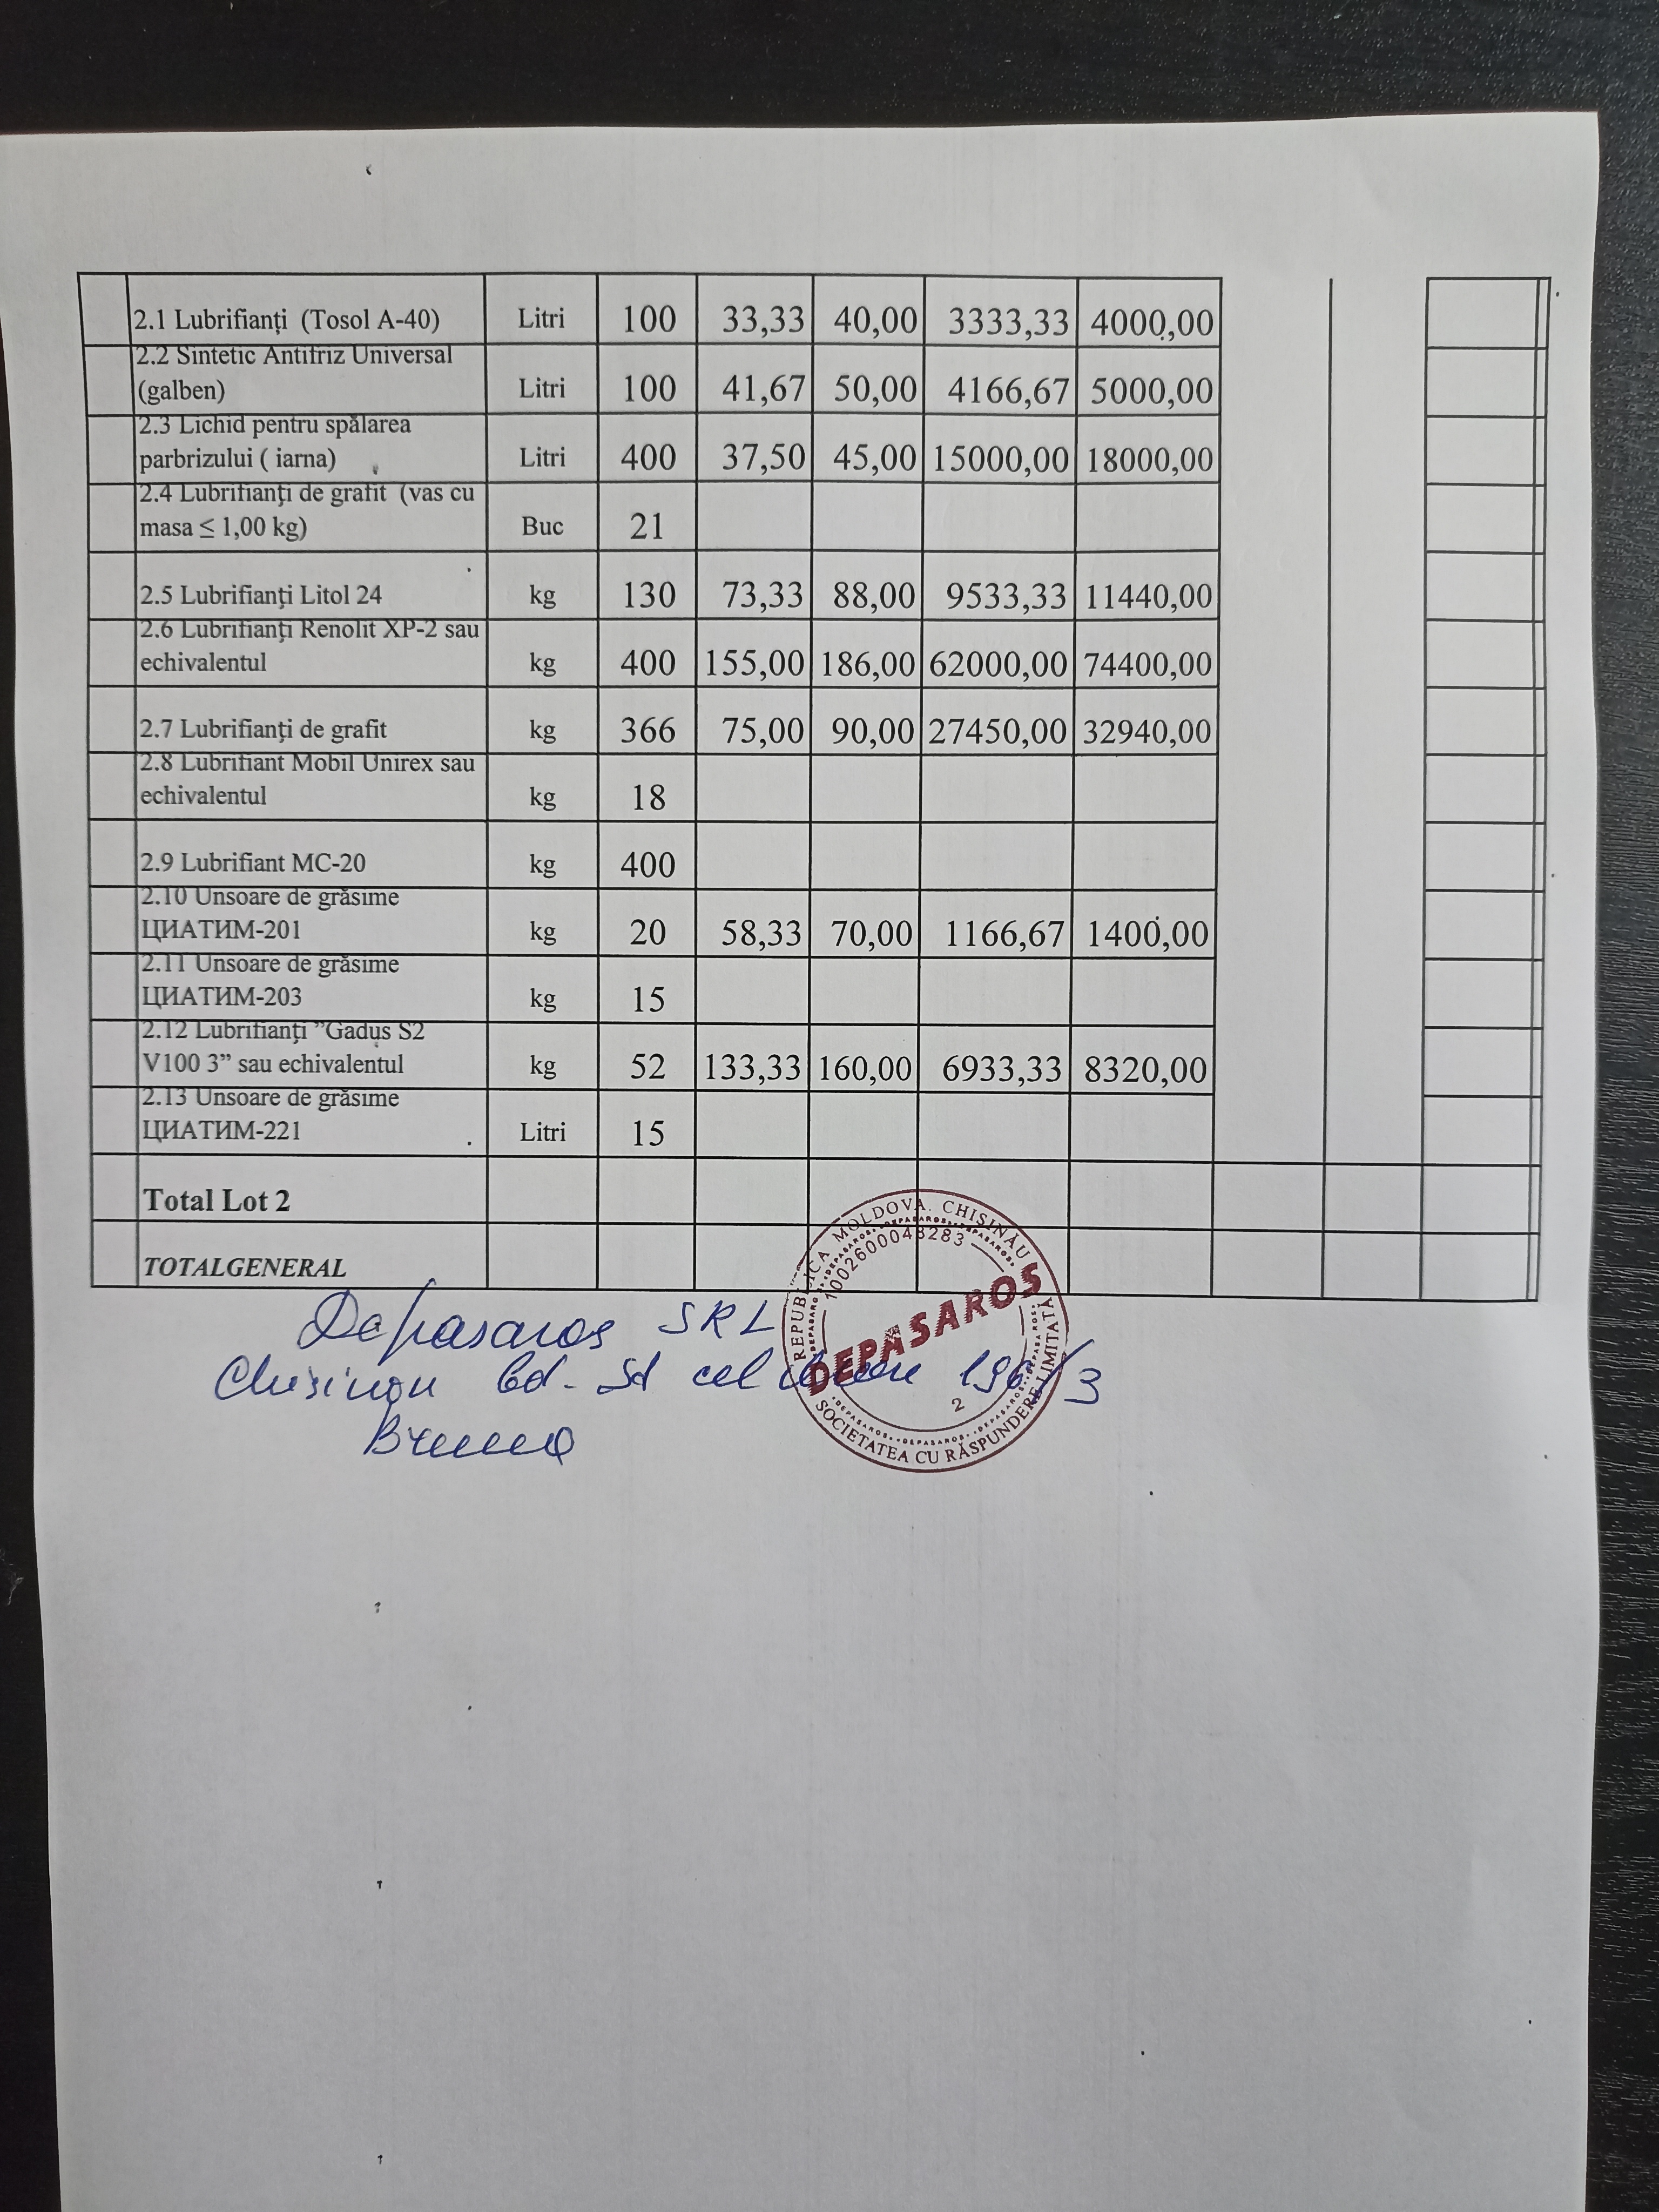 2.1 Lubrifianți (Tosol A-40) Litri 100 33,33 40,00 3333,33 4000,00
2.2 Sintetic Antifriz Universal
(galben) Litri 100 41,67 50,00 4166,67 5000,00
2.3 Lichid pentru spălarea
parbrizului ( iarna) Litri 400 37,50 45,00 15000,00 18000,00
2.4 Lubrifianți de grafit (vas cu
masa ≤ 1,00 kg) Buc 21
2.5 Lubrifianți Litol 24 kg 130 73,33 88,00 9533,33 11440,00
2.6 Lubrifianți Renolit XP-2 sau
echivalentul kg 400 155,00 186,00 62000,00 74400,00
2.7 Lubrifianți de grafit kg 366 75,00 90,00 27450,00 32940,00
2.8 Lubrifiant Mobil Unirex sau
echivalentul kg 18
2.9 Lubrifiant MC-20 kg 400
2.10 Unsoare de grăsime
ЦИАТИМ-201 kg 20 58,33 70,00 1166,67 1400,00
2.11 Unsoare de grăsime
ЦИАТИМ-203 kg 15
2.12 Lubrifianți ”Gadus S2
V100 3” sau echivalentul kg 52 133,33 160,00 6933,33 8320,00
2.13 Unsoare de grăsime
ЦИАТИМ-221 Litri 15
Total Lot 2
TOTALGENERAL
REPUBLICA MOLDOVA. CHIȘINĂU
1002600048283
DEPASAROS
2
SOCIETATEA CU RĂSPUNDERE LIMITATĂ
Depasaros SRL
Chisinau bd. St cel 196/3